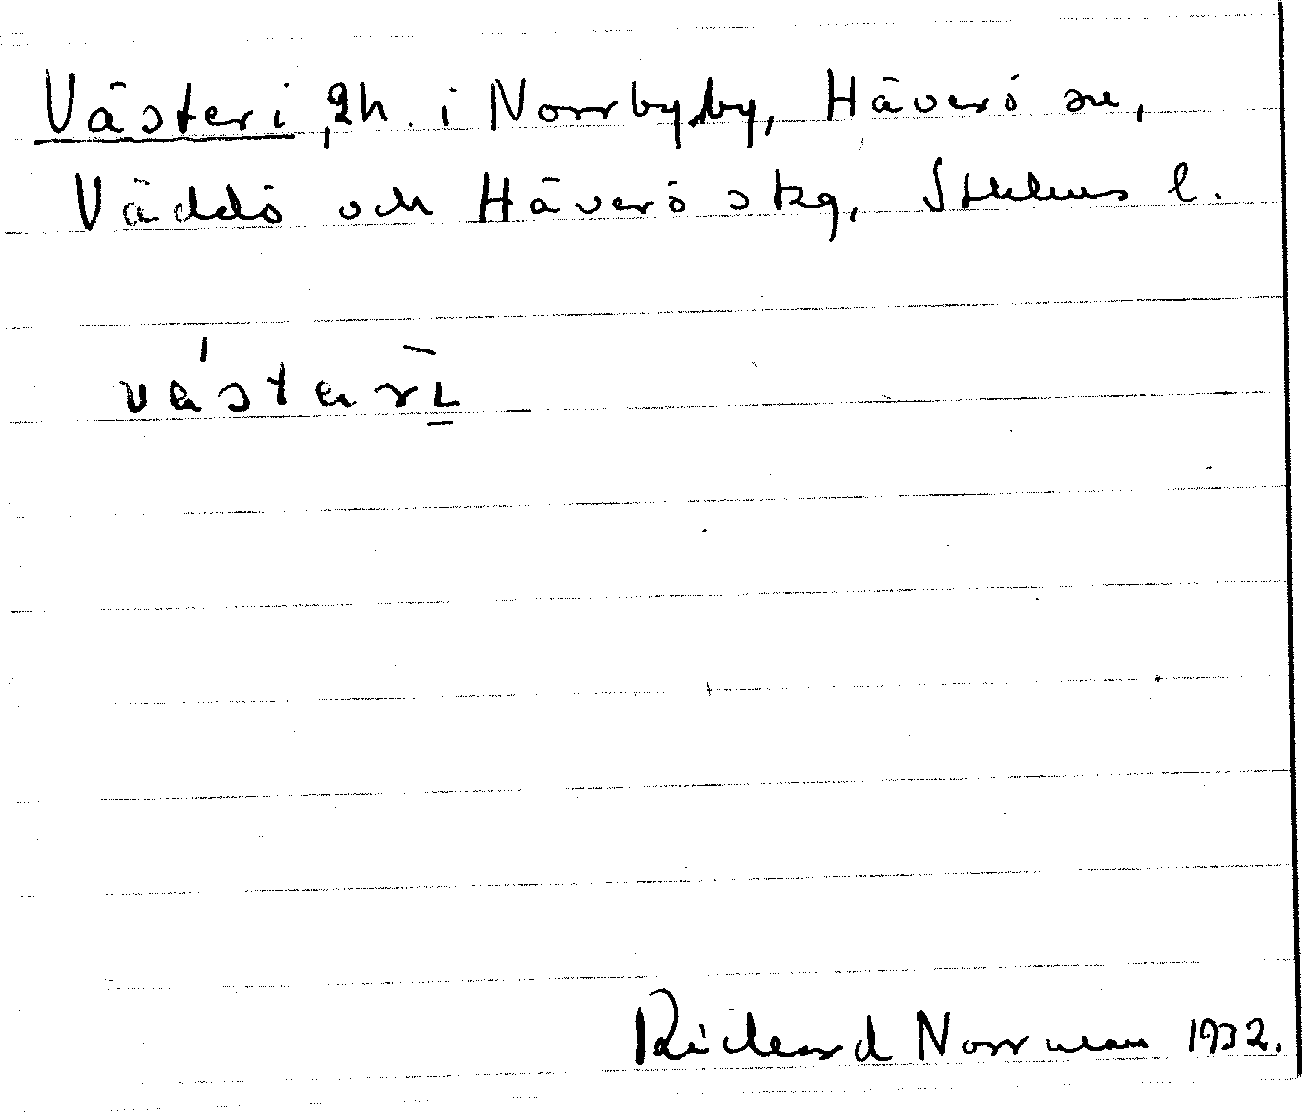 Västeri, gh. i Norrbyby, Häverö sn,
Väddö och Häverö skg, Sthlms l.
Richard Norrman 1932.